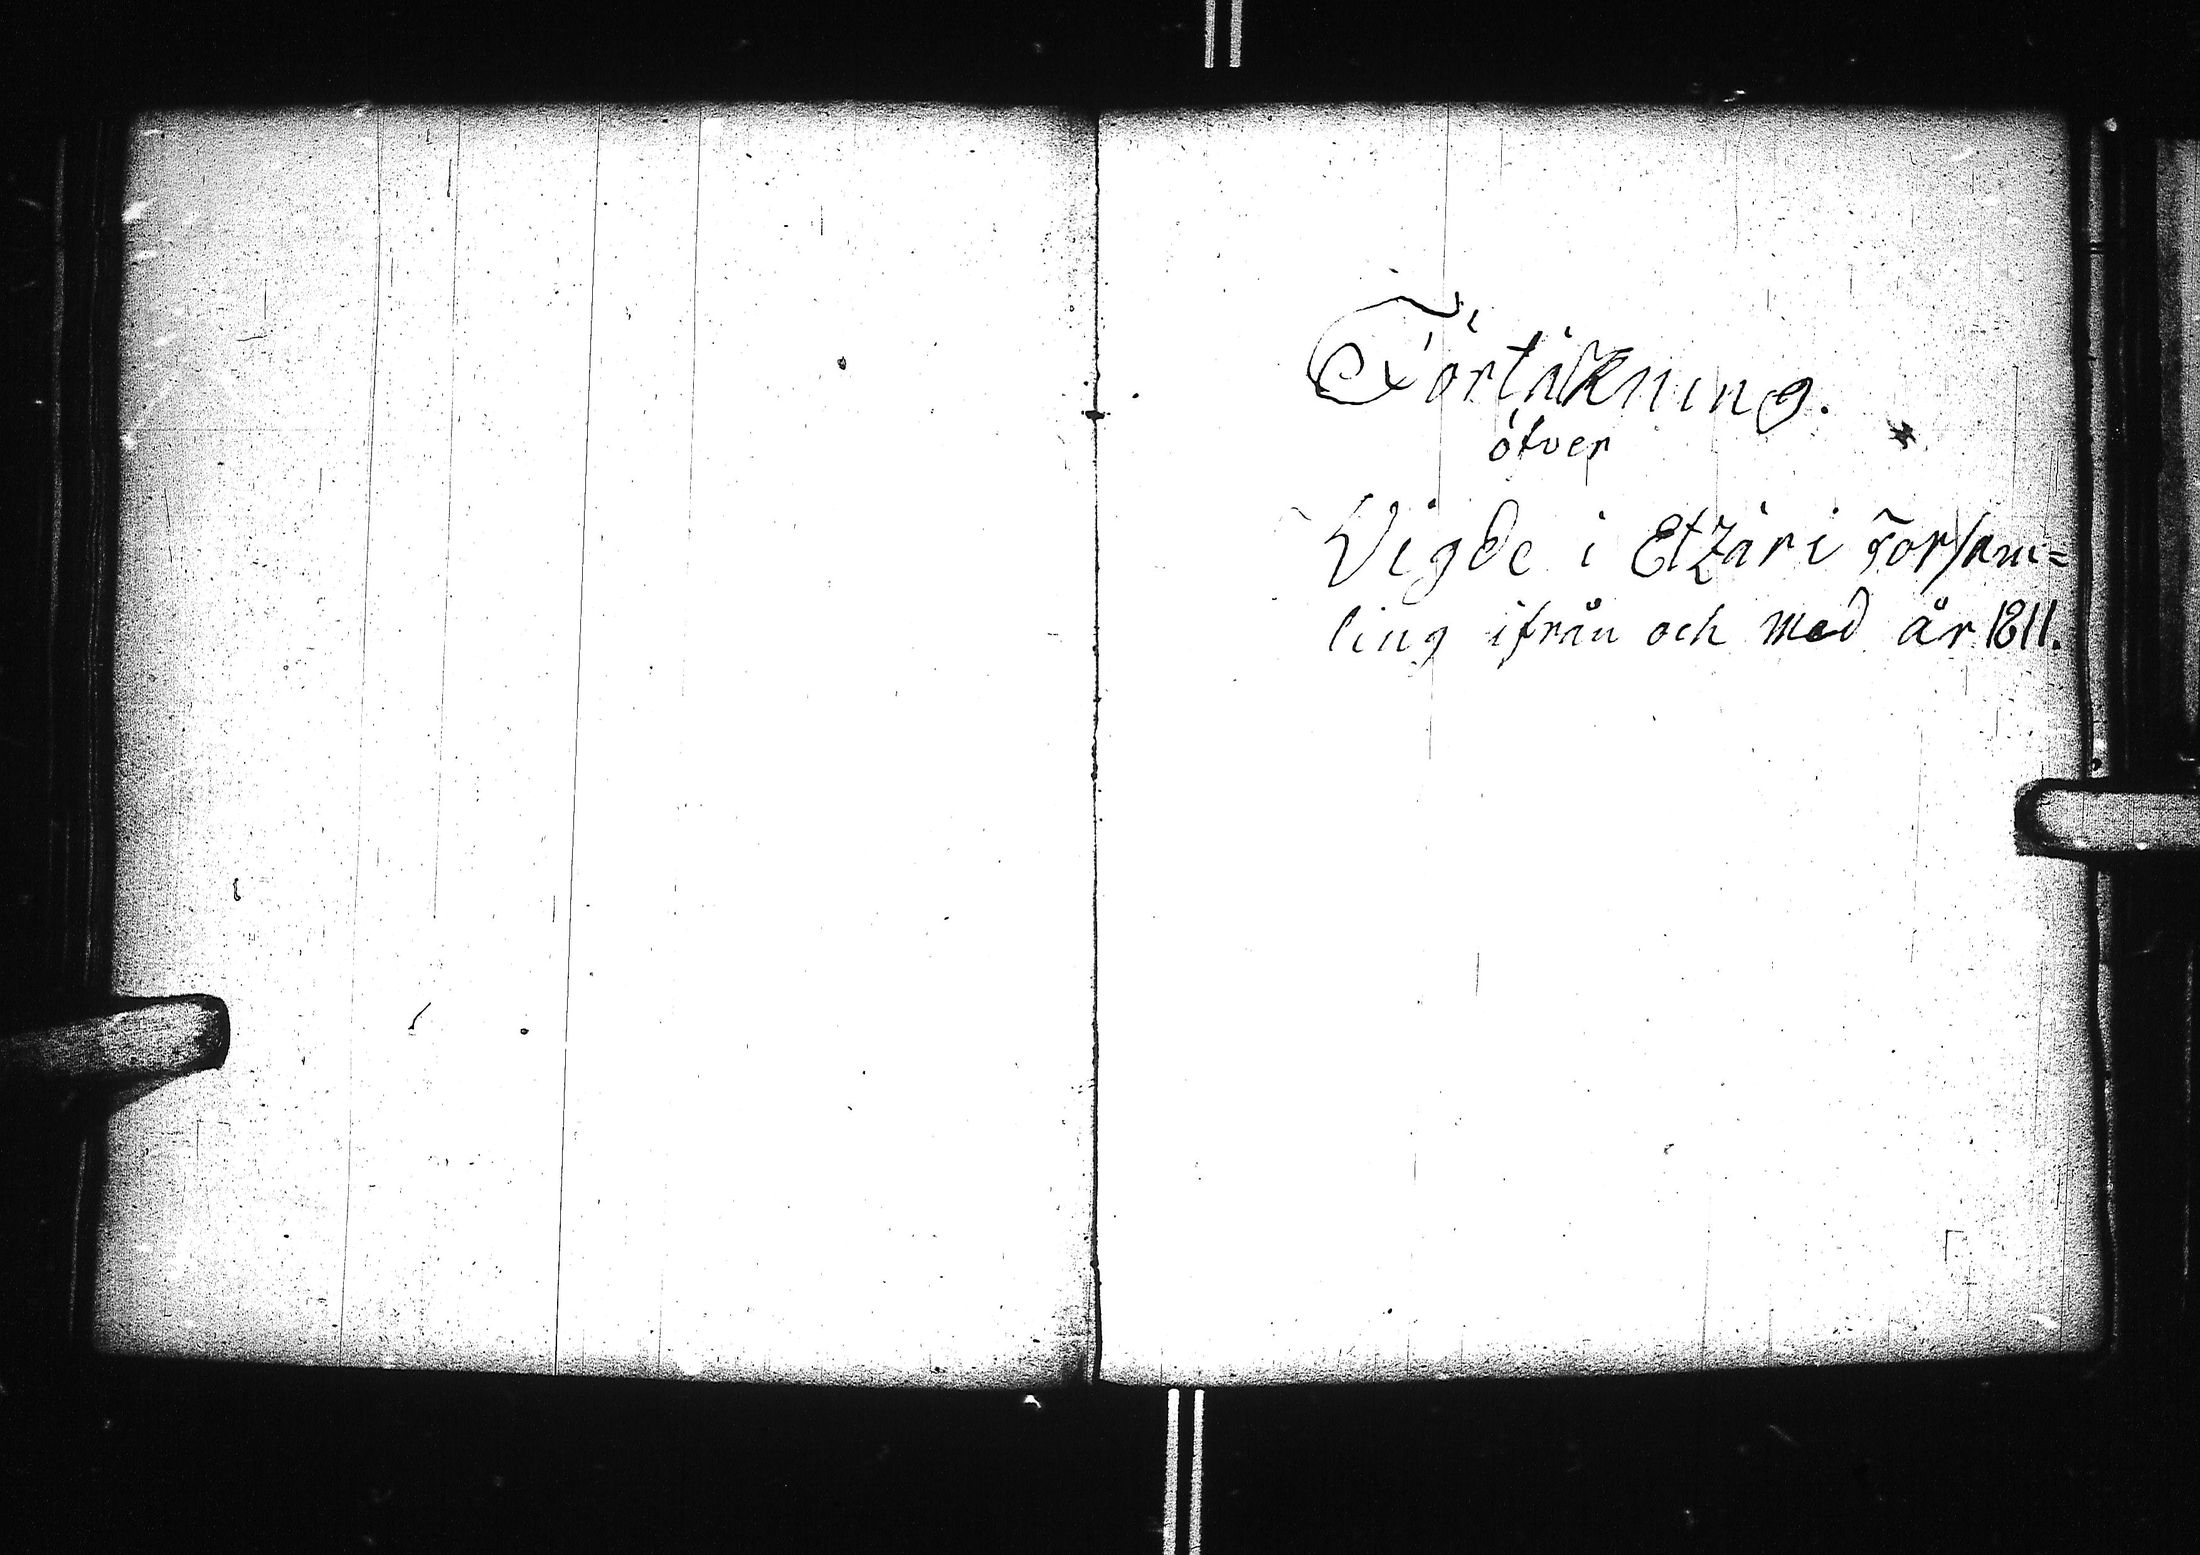 Förtäkning.
öfver
Vigde i Etzäri Forsam=
ling ifrån och med år 1811.